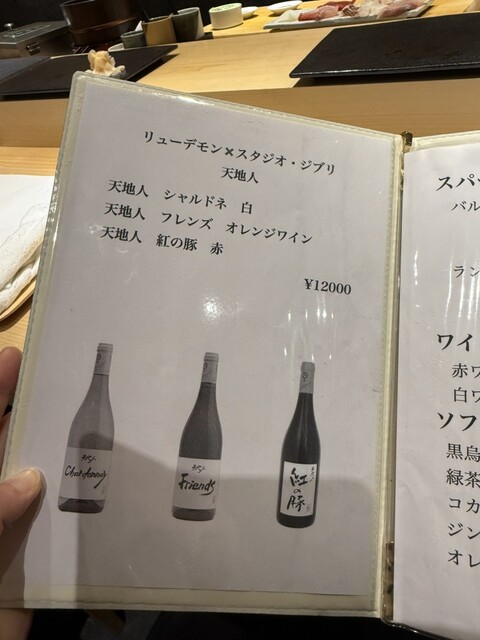 リューデモン×スタジオ・ジブリ
天地人
天地人 シャルドネ 白
天地人 フレンズ オレンジワイン
天地人 紅の豚 赤
¥12000
Chardonnay
Friends
紅の豚
スパ
バル
ラン
ワイ
赤ワ
白ワ
ソフ
黒烏
緑茶
コカ
ジン
オレ